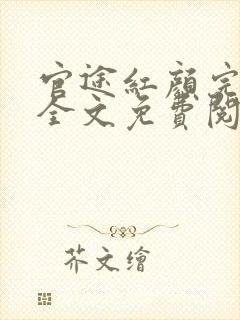 官途紅顏完
全文免費閱
芥文繪